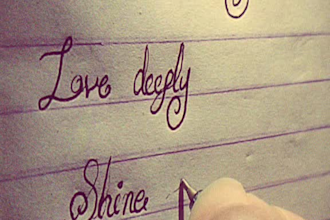 Love deeply
Shine